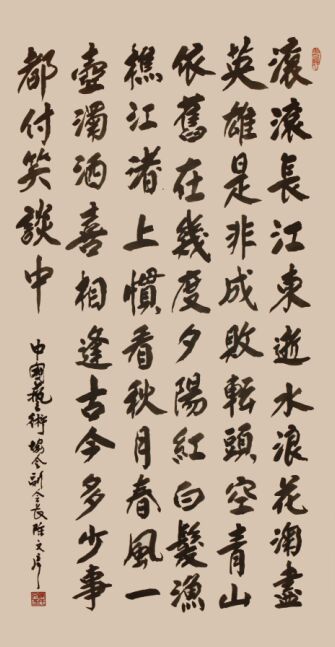 滾滾長江東逝水浪花淘盡
英雄是非成敗転頭空青山
依舊在幾度夕陽紅白髮漁
樵江渚上慣看秋月春風一
壺濁酒喜相逢古今多少事
都付笑談中
中國藝術協会副会長